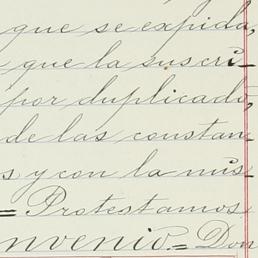 que se expida,
que la suscri-
por duplicado,
de las constan-
s y con la mis-
= Protestamos
nvenio.= Don